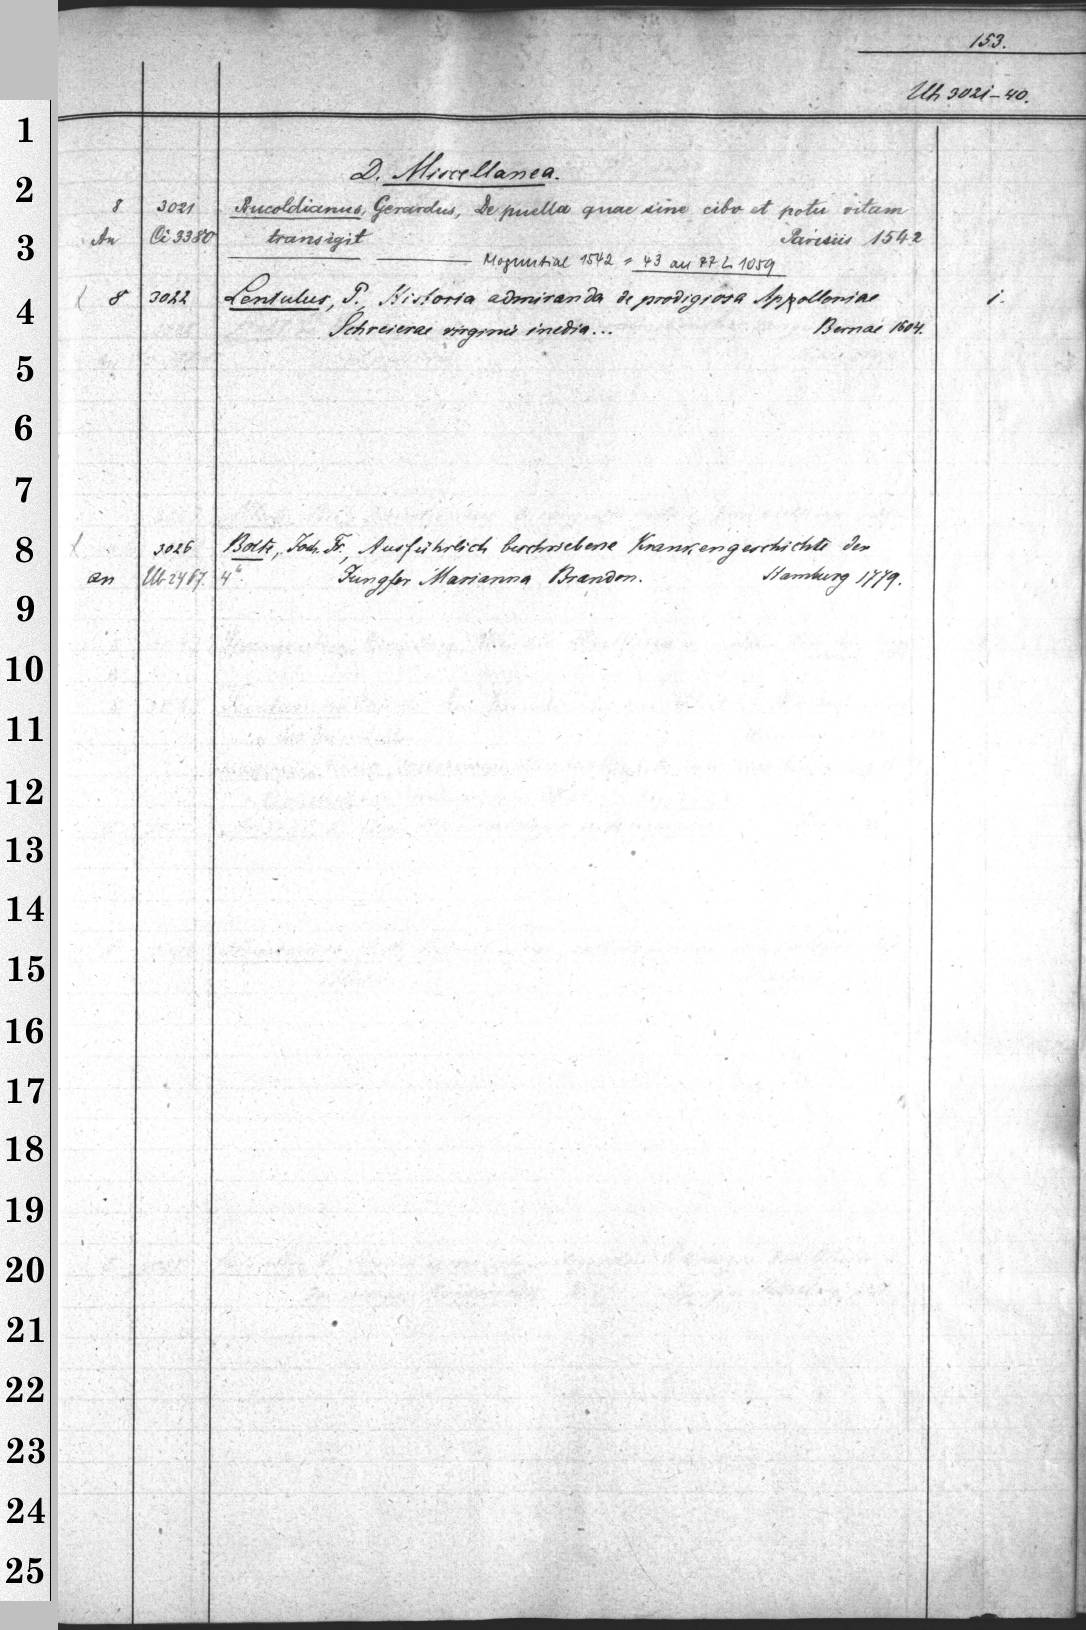 153.
Uh 3021-40.
1
2
3
4
5
6
7
8
9
10
11
12
13
14
15
16
17
18
19
20
21
22
23
24
25
D. Miscellanea.
8 3021 Bucoldianus, Gerardus, De puella quae sine cibo et potu vitam
An Oi 3380 transigit Parisiis 1542
Moguntiae 1542 = 43 an 77 L 1059
8 3022 Lentulus, P., Historia admiranda de prodigiosa Appolloniae 1.
Schreierae virginis inedia... Bernae 1604.
3026 Bolte, Joh. Fr., Ausführlich beschriebene Krankengeschichte der
an Ub 2467. 4° Jungfer Marianna Brandon. Hamburg 1779.